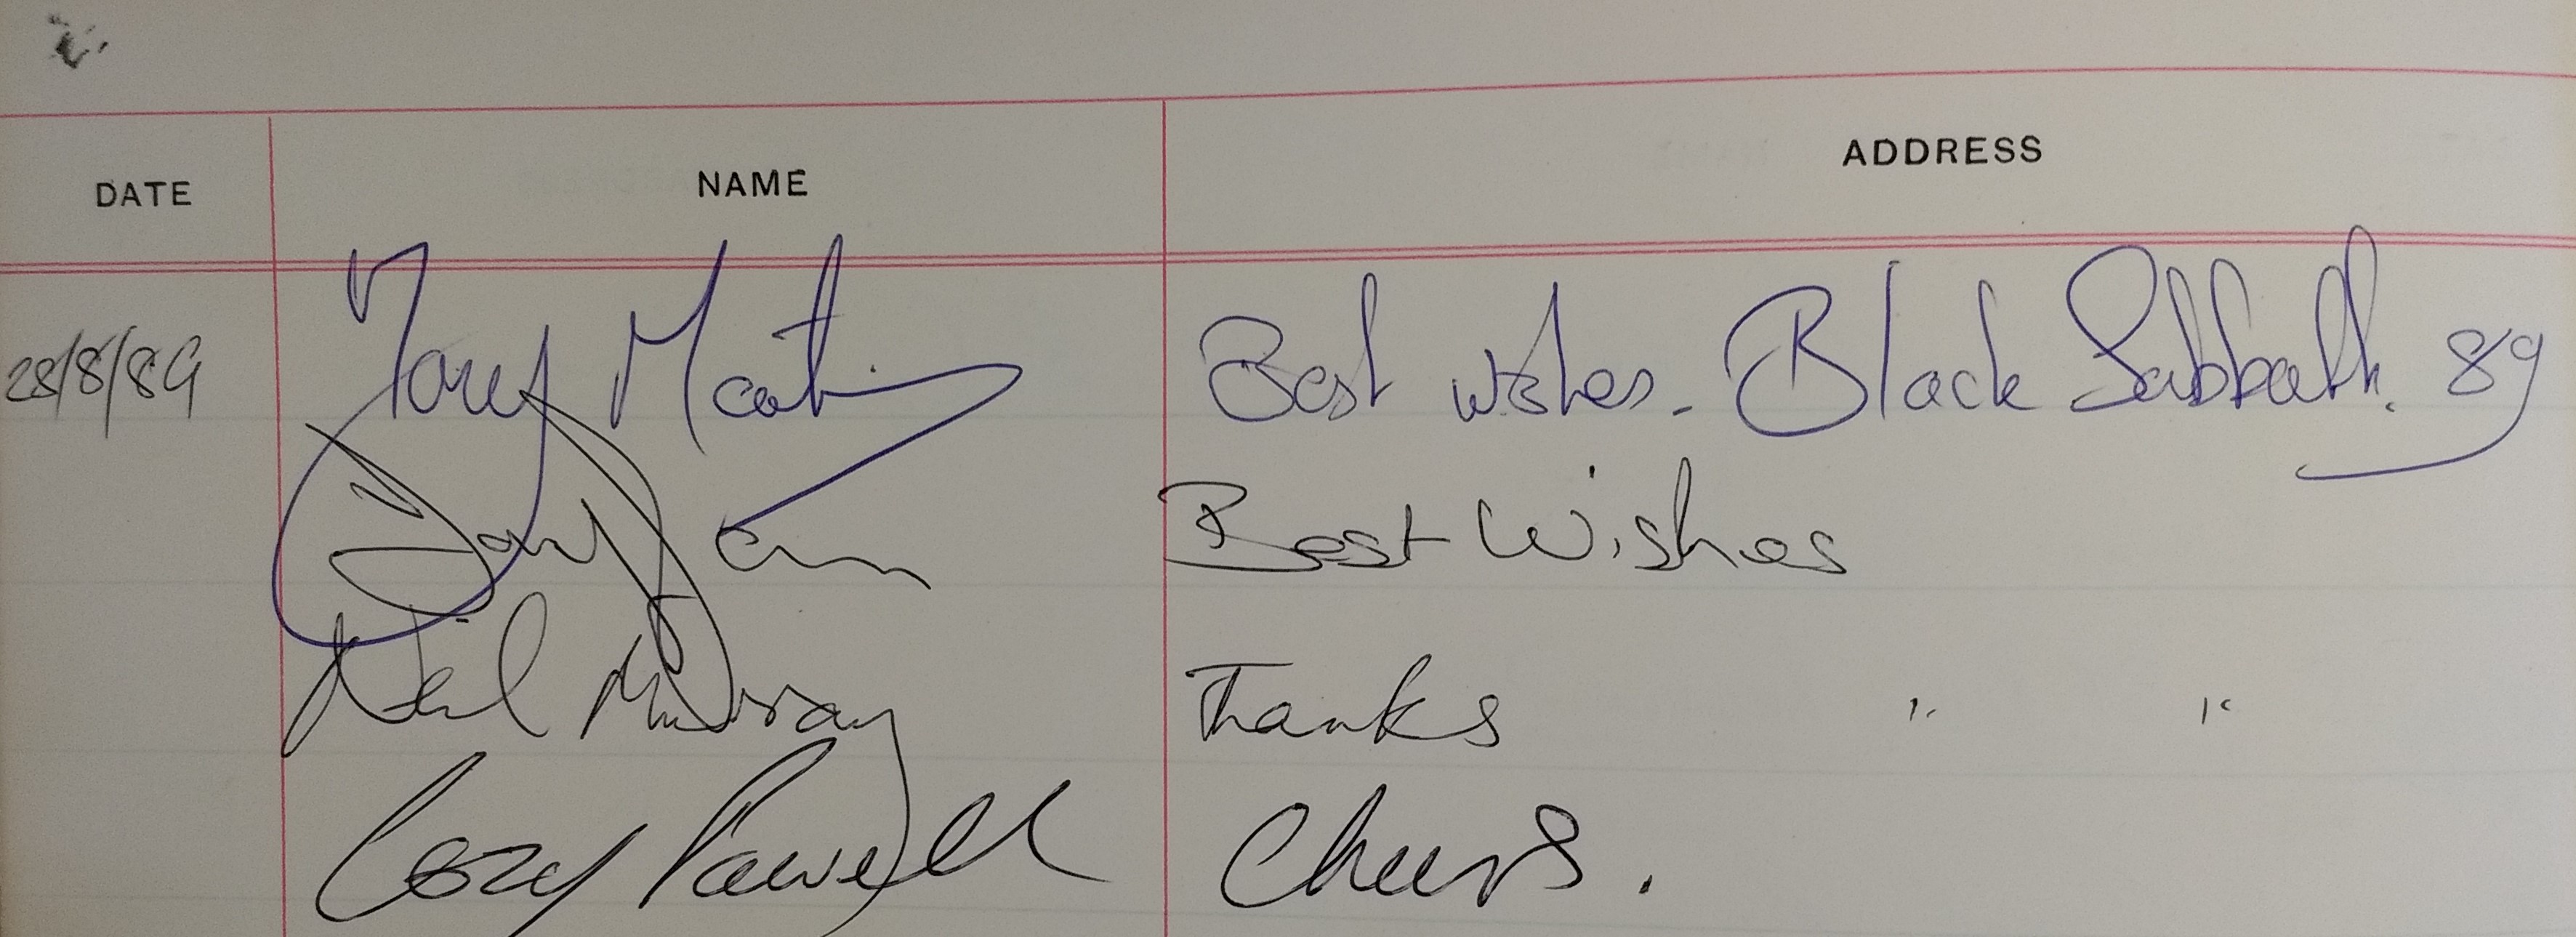 DATE NAME ADDRESS
28/8/89 Tony Martin Best wishes. Black Sabbath. 89
Tony Best Wishes
Neil Murray Thanks " "
Cozy Powell Cheers.